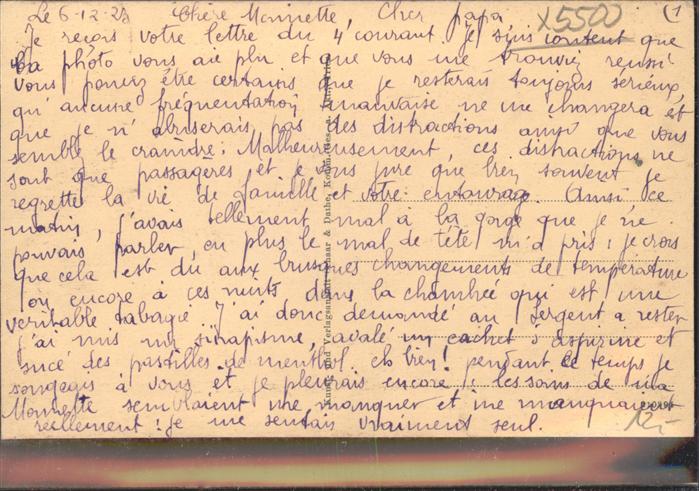 Le 6-12-23 Chère Monnette, Cher papa x5500 (1
Je reçois votre lettre du 4 courant. Je suis content que
la photo vous aie plu et que vous me trouviez reussi
Vous pouvez être certains que je resterais toujours sérieux,
qu'aucune fréquentation mauvaise ne me changera et
que je n'abuserais pas des distractions ainsi que vous
semblez le craindre. Malheureusement, ces distractions ne
sont que passagères et je vous jure que bien souvent je
regrette la vie de famille et votre entourage. Ainsi ce
matin, j'avais tellement mal à la gorge que je ne
pouvais parler, en plus le mal de tête m'a pris; je crois
que cela est dû aux brusques changements de température
ou encore à ces nuits dans la chambrée qui est une
veritable tabagie. J'ai donc demandé au sergent a rester
j'ai mis un sinapisme, avalé un cachet d'aspirine et
sucé des pastilles de menthol. eh bien! pendant ce temps je
songeais à vous et je pleurais encore; les soins de ma
Monnette semblaient me manquer et me manquaient
réellement; je me sentais vraiment seul.
Kunst- und Verlagsanstalt Schaar & Dathe
12-